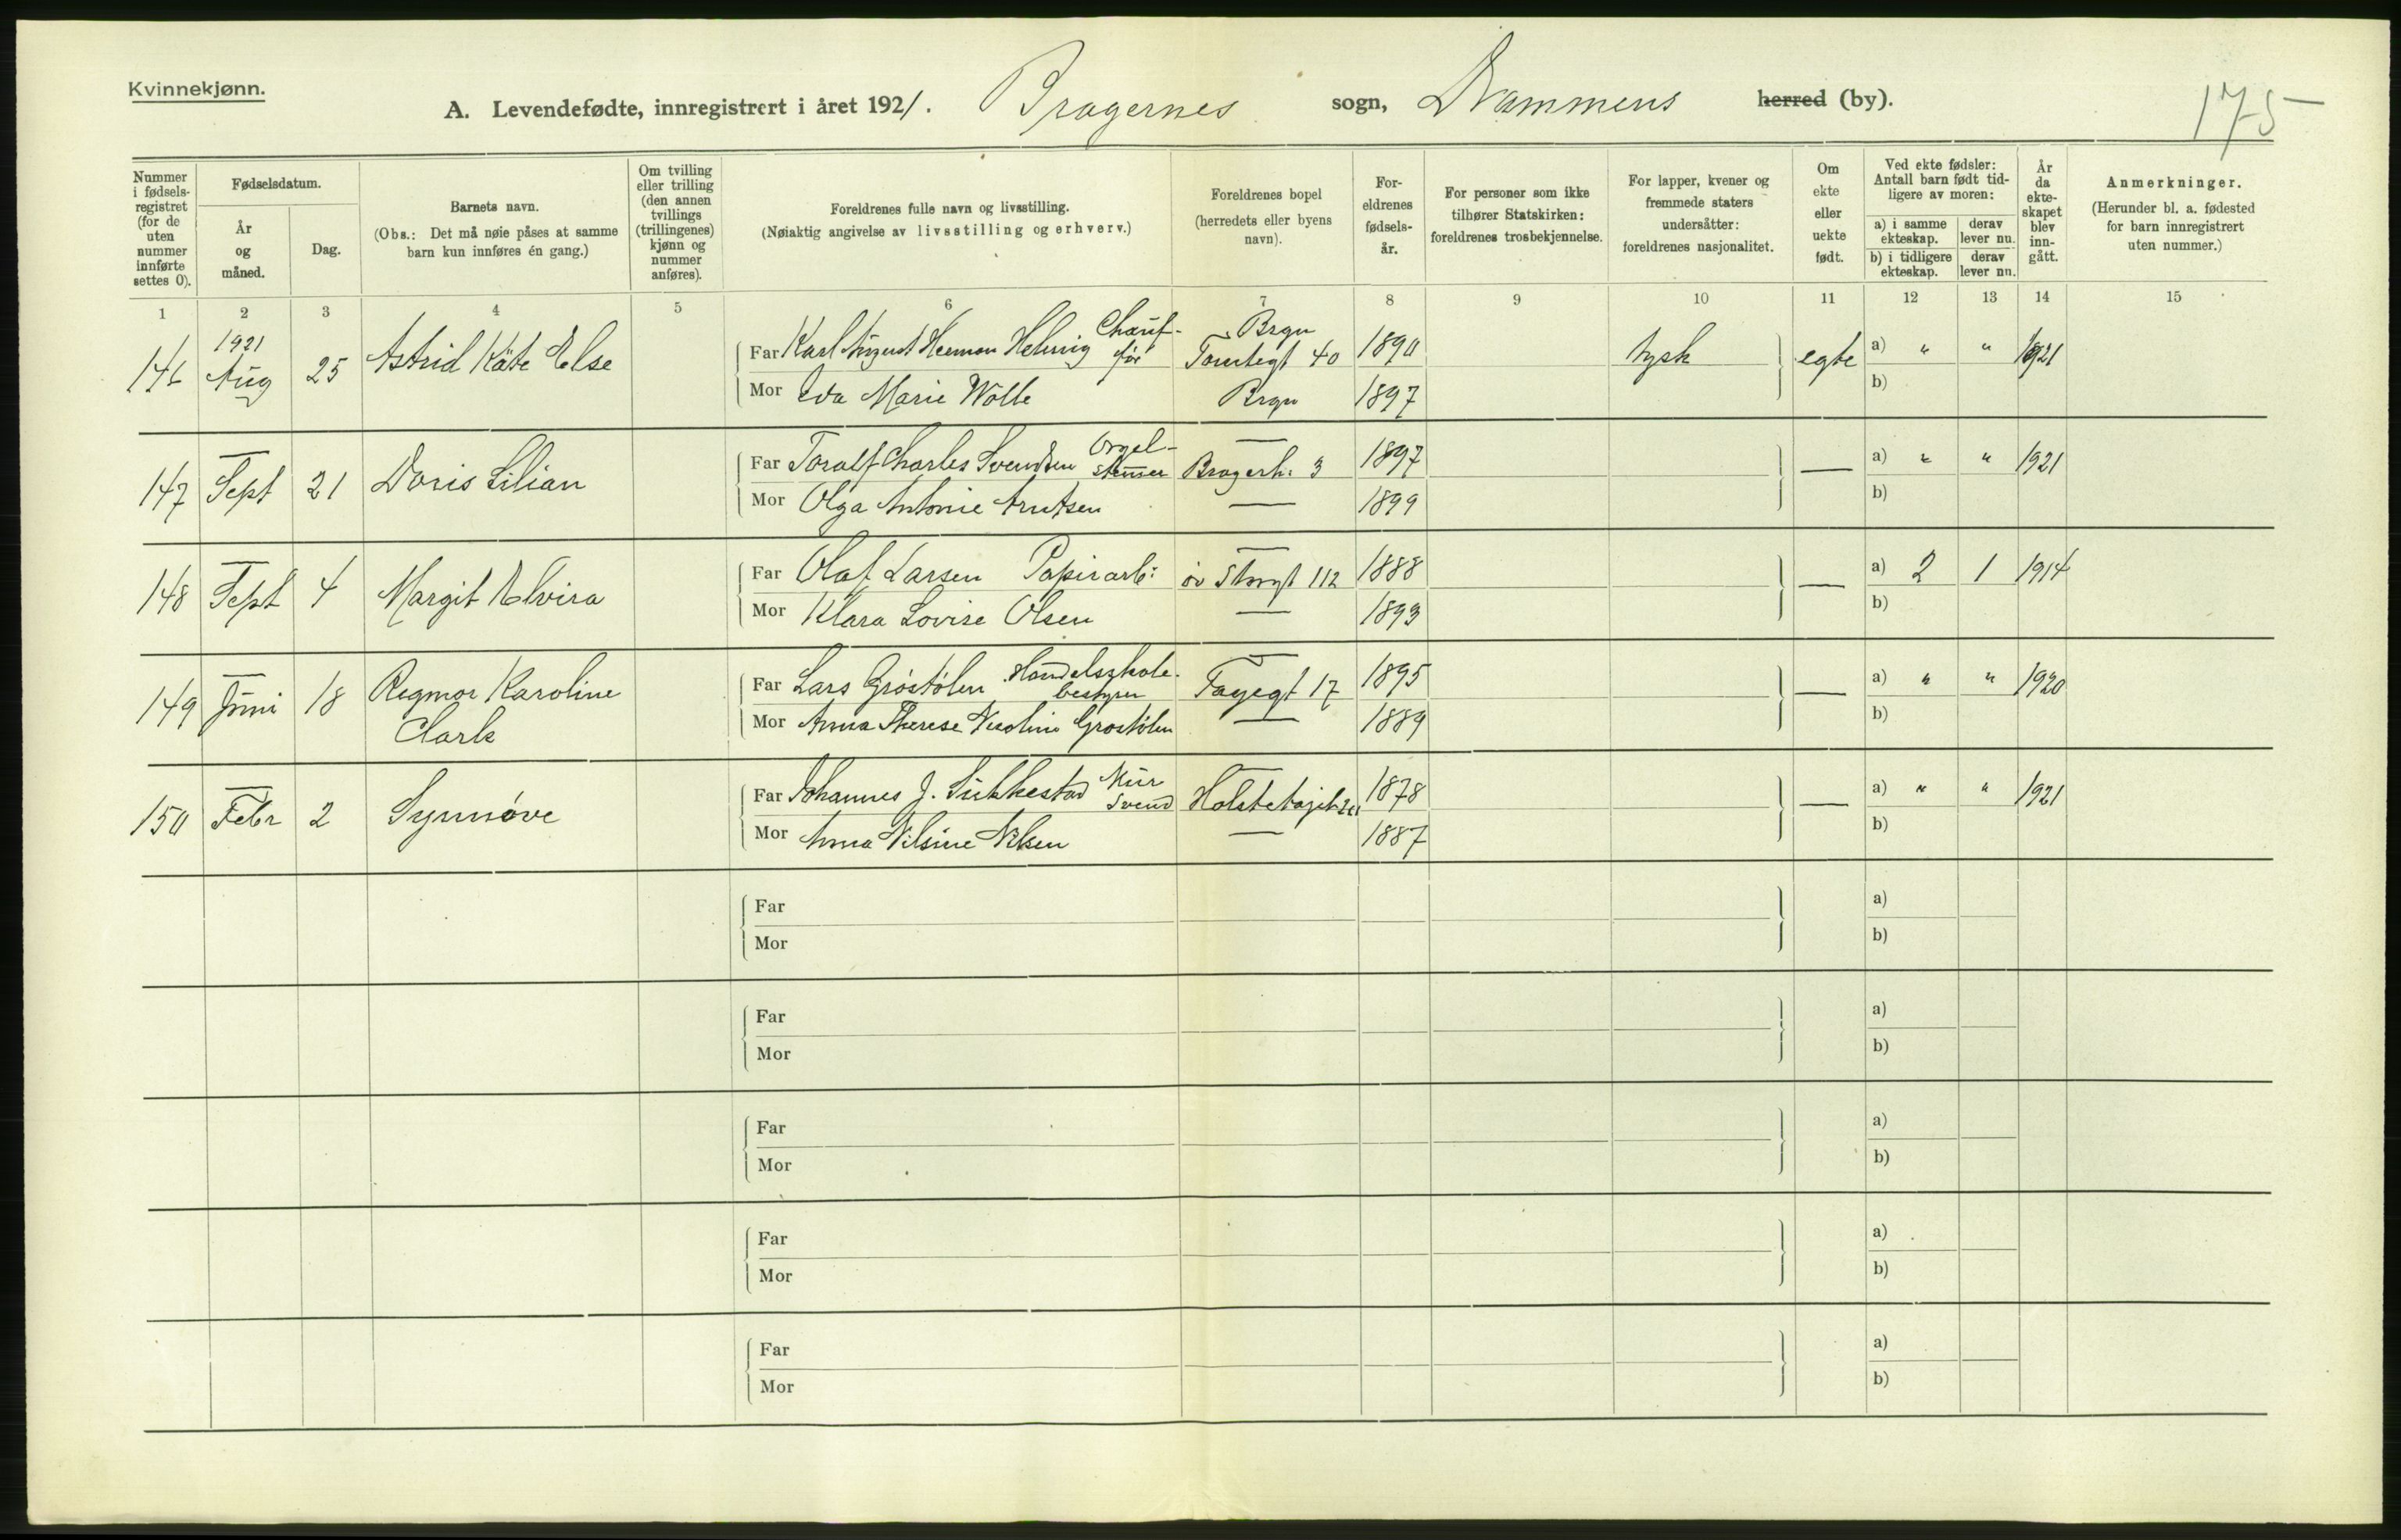 Kvinnekjønn.
A. Levendefødte, innregistrert i året 1921. Bragernes sogn, Drammens herred (by).
175
Nummer i fødsels-registret (for de uten nummer innførte settes 0).
Fødselsdatum.
År og måned.
Dag.
Barnets navn.
(Obs.: Det må nøie påses at samme barn kun innføres én gang.)
Om tvilling eller trilling (den annen tvillings (trillingenes) kjønn og nummer anføres).
Foreldrenes fulle navn og livsstilling.
(Nøiaktig angivelse av livsstilling og erhverv.)
Foreldrenes bopel (herredets eller byens navn).
For-eldrenes fødsels-år.
For personer som ikke tilhører Statskirken: foreldrenes trosbekjennelse.
For lapper, kvener og fremmede staters undersåtter: foreldrenes nasjonalitet.
Om ekte eller uekte født.
Ved ekte fødsler: Antall barn født tid-ligere av moren:
a) i samme ekteskap.
derav lever nu.
b) i tidligere ekteskap.
derav lever nu.
År da ekte-skapet blev inn-gått.
Anmerkninger.
(Herunder bl. a. fødested for barn innregistrert uten nummer.)
1 2 3 4 5 6 7 8 9 10 11 12 13 14 15
146 1921 Aug 25 Astrid Käte Else
Far Karl August Herman Helmig Chauf-før Brgn Tomtegt 40 1890 tysk egte a) " " 1921
Mor Eva Marie Wölle Brgn 1897 b)
147 Sept 21 Doris Lilian
Far Toralf Charles Svendsen Orgel-stemmer Bragerh: 3 1897 — a) " " 1921
Mor Olga Antonie Arntsen — 1899 b)
148 Sept 4 Margit Elvira
Far Olaf Larsen Papirarb: øv Storgt 112 1888 — a) 2 1 1914
Mor Klara Lovise Olsen — 1893 b)
149 Juni 18 Regmor Karoline
Far Lars Grøstølen Handelsskole-bestyrer Fayegt 17 1895 — a) " " 1920
Mor Anna Therese Grøstølen — 1889 b)
150 Febr 2 Synnøve
Far Johannes J. Sukkestad Mur Svend 1878 — a) " " 1921
Mor Anna Nilsine Nilsen — 1887 b)
Far a)
Mor b)
Far a)
Mor b)
Far a)
Mor b)
Far a)
Mor b)
Far a)
Mor b)